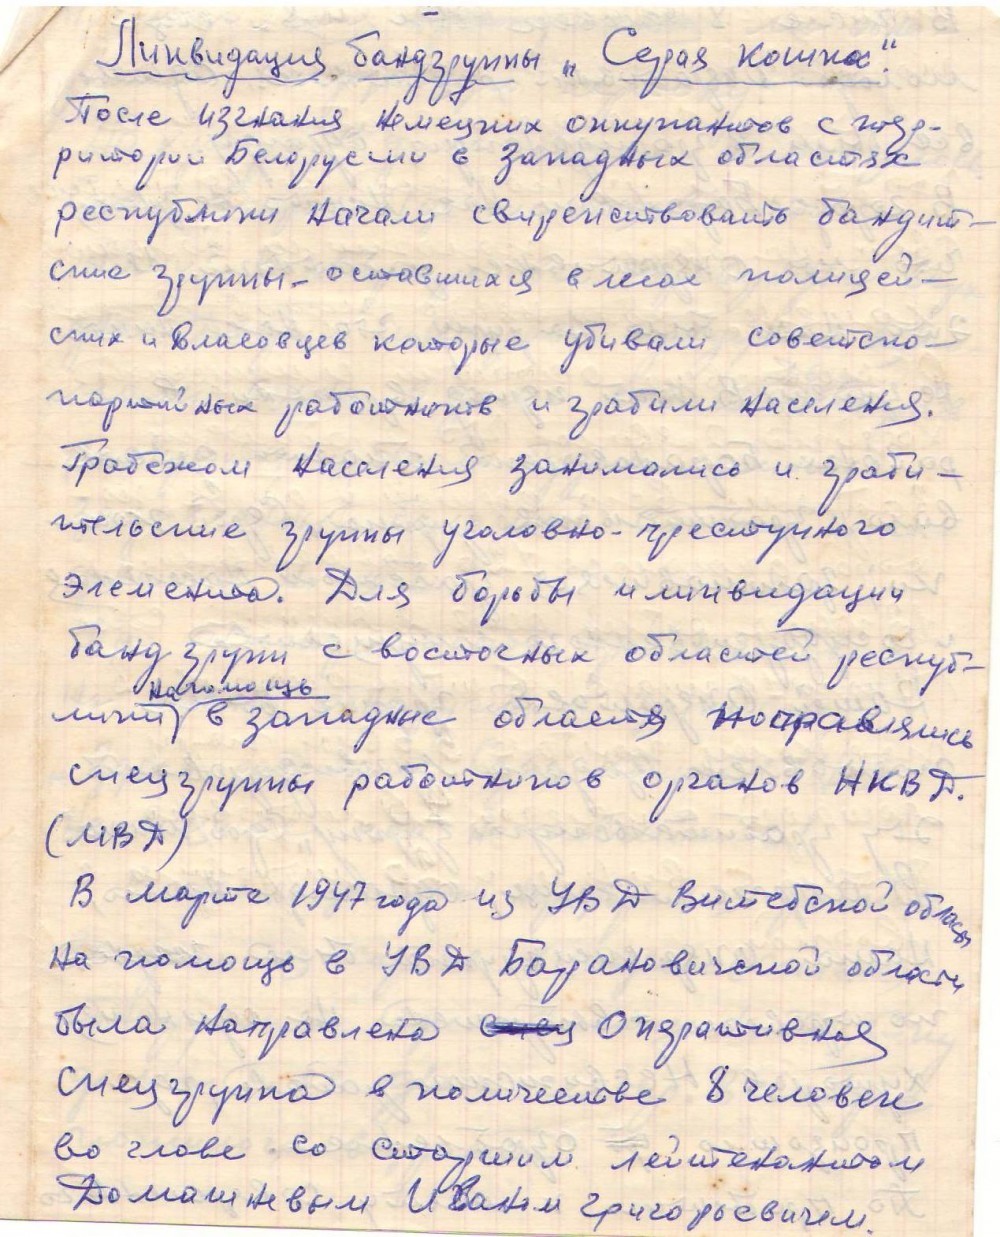 Ликвидация бандгруппы „Серая кошка".
После изгнания немецких оккупантов с тер-
ритории Белорусии в западных областях
республики начали свирепствовать бандит-
ские группы - оставшихся в лесах полицей-
ских и власовцев которые убивали советско-
партийных работников и грабили население.
Грабежом населения занимались и граби-
тельские группы уголовно-преступного
элемента. Для борьбы и ликвидации
бандгрупп с восточных областей респуб-
на помощь
лики в западные области направлялись
спецгруппы работников органов НКВД.
(МВД)
В марте 1947 года из УВД Витебской области
на помощь в УВД Барановичской области
была направлена спец Оперативная
спецгруппа в количестве 8 человек
во главе со старшим лейтенантом
Домашневым Иваном Григорьевичем.